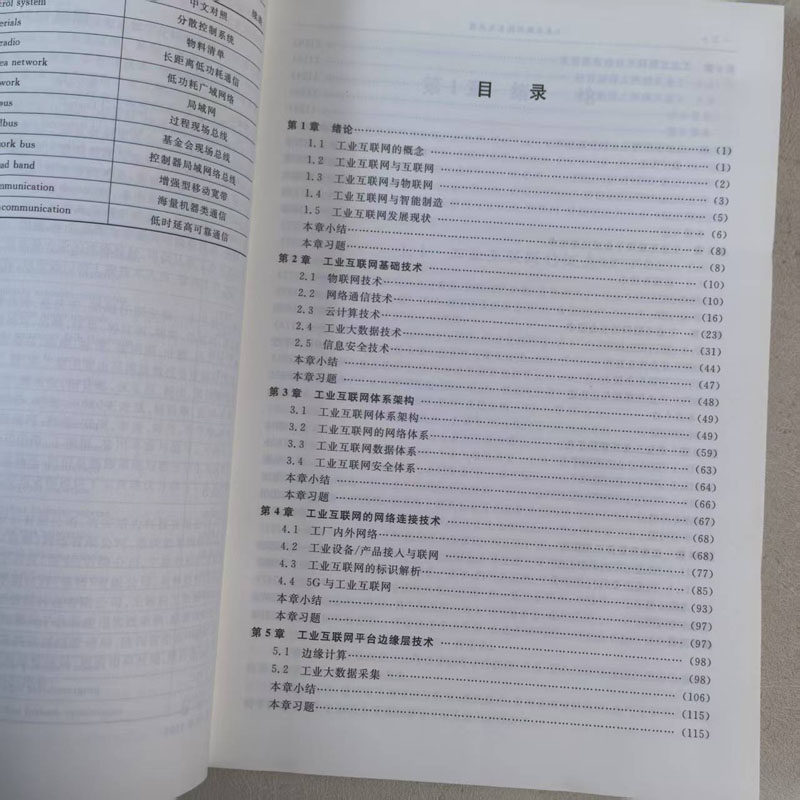 中文对照
rol system 分散控制系统
erials 物料清单
radio 长距离低功耗通信
ea network 低功耗广域网络
work 局域网
bus 过程现场总线
lbus 基金会现场总线
ork bus 控制器局域网络总线
ad band 增强型移动宽带
mmunication 海量机器类通信
communication 低时延高可靠通信
目 录
第1章 绪论……(1)
1.1 工业互联网的概念……(1)
1.2 工业互联网与互联网……(2)
1.3 工业互联网与物联网……(3)
1.4 工业互联网与智能制造……(5)
1.5 工业互联网发展现状……(6)
本章小结……(8)
本章习题……(8)
第2章 工业互联网基础技术……(10)
2.1 物联网技术……(10)
2.2 网络通信技术……(16)
2.3 云计算技术……(23)
2.4 工业大数据技术……(31)
2.5 信息安全技术……(44)
本章小结……(47)
本章习题……(48)
第3章 工业互联网体系架构……(49)
3.1 工业互联网体系架构……(49)
3.2 工业互联网的网络体系……(59)
3.3 工业互联网数据体系……(63)
3.4 工业互联网安全体系……(64)
本章小结……(66)
本章习题……(67)
第4章 工业互联网的网络连接技术……(68)
4.1 工厂内外网络……(68)
4.2 工业设备/产品接入与联网……(77)
4.3 工业互联网的标识解析……(85)
4.4 5G与工业互联网……(93)
本章小结……(97)
本章习题……(97)
第5章 工业互联网平台边缘层技术……(98)
5.1 边缘计算……(98)
5.2 工业大数据采集……(106)
本章小结……(115)
本章习题……(115)